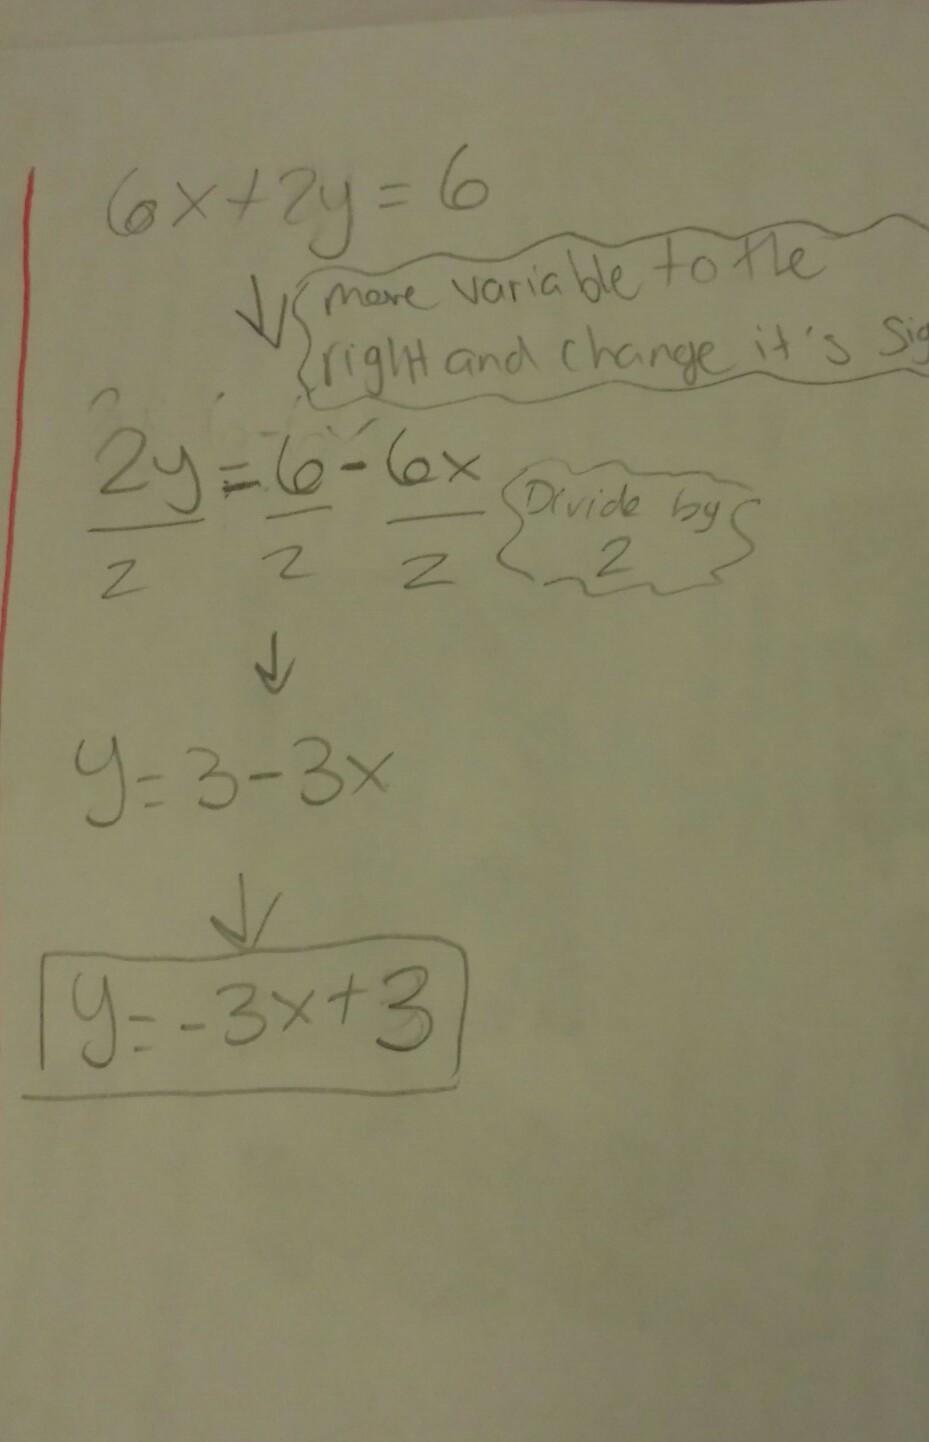 6x+2y=6
move variable to the
right and change it's
2y=6-6x
2 2 2
Divide by
2
y=3-3x
y=-3x+3